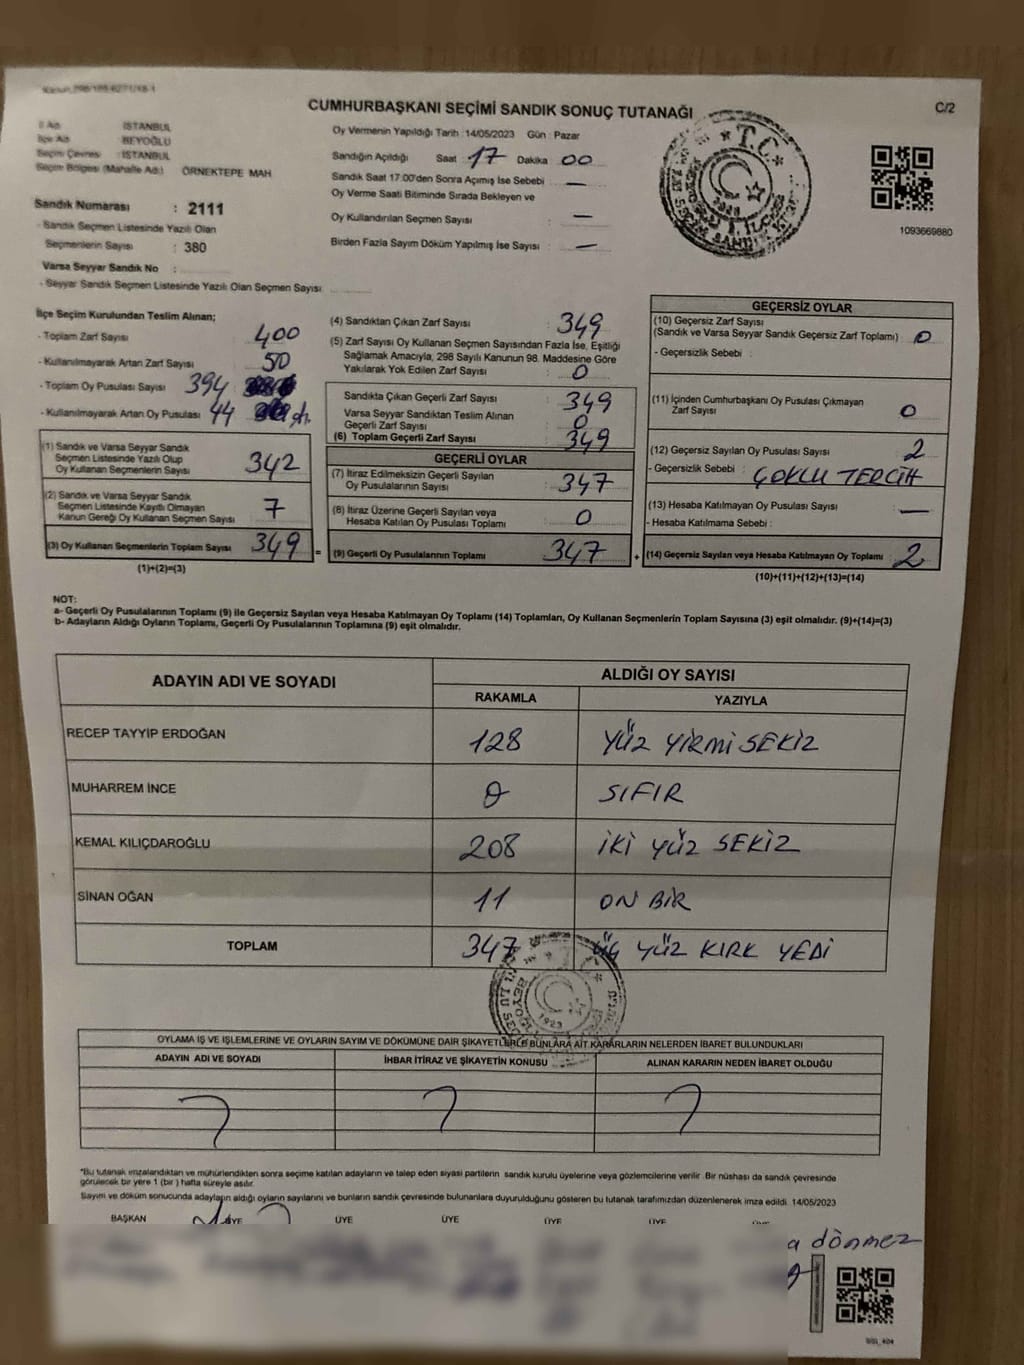 CUMHURBAŞKANI SEÇİMİ SANDIK SONUÇ TUTANAĞI
C/2
İl Adı : İSTANBUL
İlçe Adı : BEYOĞLU
Seçim Çevresi : İSTANBUL
Seçim Bölgesi (Mahalle Adı) : ÖRNEKTEPE MAH
Sandık Numarası : 2111
- Sandık Seçmen Listesinde Yazılı Olan
Seçmenlerin Sayısı : 380
Varsa Seyyar Sandık No :
- Seyyar Sandık Seçmen Listesinde Yazılı Olan Seçmen Sayısı :
Oy Vermenin Yapıldığı Tarih :14/05/2023 Gün : Pazar
Sandığın Açıldığı Saat 17 Dakika 00
Sandık Saat 17:00'den Sonra Açımış İse Sebebi : —
Oy Verme Saati Bitiminde Sırada Bekleyen ve
Oy Kullandırılan Seçmen Sayısı : —
Birden Fazla Sayım Döküm Yapılmış İse Sayısı : —
1093669880
İlçe Seçim Kurulundan Teslim Alınan;
- Toplam Zarf Sayısı : 400
- Kullanılmayarak Artan Zarf Sayısı : 50
- Toplam Oy Pusulası Sayısı : 394
- Kullanılmayarak Artan Oy Pusulası : 44
(1) Sandık ve Varsa Seyyar Sandık
Seçmen Listesinde Yazılı Olup
Oy Kullanan Seçmenlerin Sayısı : 342
(2) Sandık ve Varsa Seyyar Sandık
Seçmen Listesinde Kayıtlı Olmayan
Kanun Gereği Oy Kullanan Seçmen Sayısı : 7
(3) Oy Kullanan Seçmenlerin Toplam Sayısı : 349
(1)+(2)=(3)
=
(4) Sandıktan Çıkan Zarf Sayısı : 349
(5) Zarf Sayısı Oy Kullanan Seçmen Sayısından Fazla İse, Eşitliği
Sağlamak Amacıyla, 298 Sayılı Kanunun 98. Maddesine Göre
Yakılarak Yok Edilen Zarf Sayısı : 0
Sandıkta Çıkan Geçerli Zarf Sayısı : 349
Varsa Seyyar Sandıktan Teslim Alınan
Geçerli Zarf Sayısı : 0
(6) Toplam Geçerli Zarf Sayısı : 349
GEÇERLİ OYLAR
(7) İtiraz Edilmeksizin Geçerli Sayılan
Oy Pusulalarının Sayısı : 347
(8) İtiraz Üzerine Geçerli Sayılan veya
Hesaba Katılan Oy Pusulası Toplamı : 0
(9) Geçerli Oy Pusulalarının Toplamı : 347
+
GEÇERSİZ OYLAR
(10) Geçersiz Zarf Sayısı
(Sandık ve Varsa Seyyar Sandık Geçersiz Zarf Toplamı) : 0
- Geçersizlik Sebebi :
(11) İçinden Cumhurbaşkanı Oy Pusulası Çıkmayan
Zarf Sayısı : 0
(12) Geçersiz Sayılan Oy Pusulası Sayısı : 2
- Geçersizlik Sebebi : ÇOKLU TERCİH
(13) Hesaba Katılmayan Oy Pusulası Sayısı : —
- Hesaba Katılmama Sebebi :
(14) Geçersiz Sayılan veya Hesaba Katılmayan Oy Toplamı : 2
(10)+(11)+(12)+(13)=(14)
NOT:
a- Geçerli Oy Pusulalarının Toplamı (9) ile Geçersiz Sayılan veya Hesaba Katılmayan Oy Toplamı (14) Toplamları, Oy Kullanan Seçmenlerin Toplam Sayısına (3) eşit olmalıdır. (9)+(14)=(3)
b- Adayların Aldığı Oyların Toplamı, Geçerli Oy Pusulalarının Toplamına (9) eşit olmalıdır.
ADAYIN ADI VE SOYADI
ALDIĞI OY SAYISI
RAKAMLA YAZIYLA
RECEP TAYYİP ERDOĞAN 128 YÜZ YİRMİ SEKİZ
MUHARREM İNCE 0 SIFIR
KEMAL KILIÇDAROĞLU 208 İKİ YÜZ SEKİZ
SİNAN OĞAN 11 ON BİR
TOPLAM 347 ÜÇ YÜZ KIRK YEDİ
OYLAMA İŞ VE İŞLEMLERİNE VE OYLARIN SAYIM VE DÖKÜMÜNE DAİR ŞİKAYETLERLE BUNLARA AİT KARARLARIN NELERDEN İBARET BULUNDUKLARI
ADAYIN ADI VE SOYADI İHBAR İTİRAZ VE ŞİKAYETİN KONUSU ALINAN KARARIN NEDEN İBARET OLDUĞU
*Bu tutanak imzalandıktan ve mühürlendikten sonra seçime katılan adayların ve talep eden siyasi partilerin sandık kurulu üyelerine veya gözlemcilerine verilir. Bir nüshası da sandık çevresinde
görülecek bir yere 1 (bir ) hafta süreyle asılır.
Sayım ve döküm sonucunda adayların aldığı oyların sayılarını ve bunların sandık çevresinde bulunanlara duyurulduğunu gösteren bu tutanak tarafımızdan düzenlenerek imza edildi. 14/05/2023
BAŞKAN ÜYE ÜYE ÜYE ÜYE ÜYE
dönmez